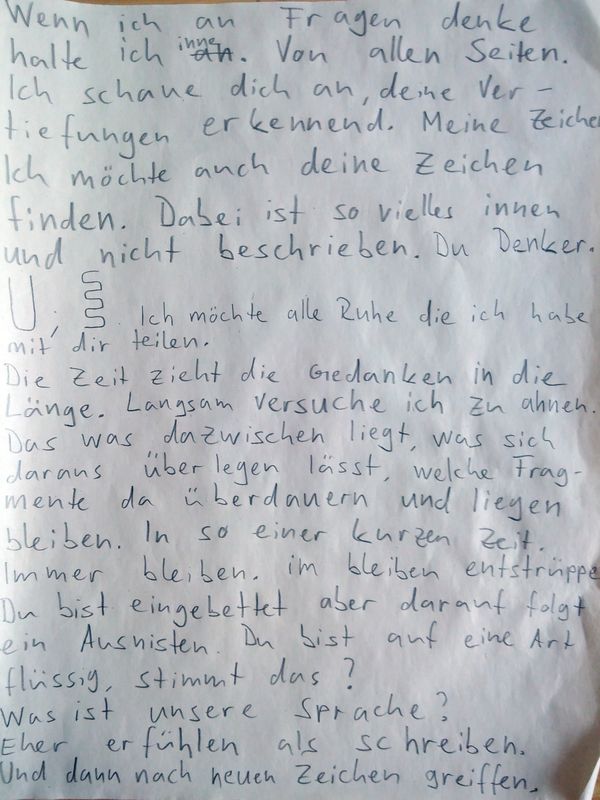 Wenn ich an Fragen denke
halte ich inne. Von allen Seiten.
Ich schaue dich an, deine Ver-
tiefungen erkennend. Meine Zeichen
Ich möchte auch deine Zeichen
finden. Dabei ist so vielles innen
und nicht beschrieben. Du Denker.
U, Ich möchte alle Ruhe die ich habe
mit dir teilen.
Die Zeit zieht die Gedanken in die
Länge. Langsam versuche ich zu ahnen.
Das was dazwischen liegt, was sich
daraus überlegen lässt, welche Frag-
mente da überdauern und liegen
bleiben. In so einer kurzen Zeit.
Immer bleiben. im bleiben entstrüppe
Du bist eingebettet aber darauf folgt
ein Ausnisten. Du bist auf eine Art
flüssig, stimmt das?
Was ist unsere Sprache?
Eher erfühlen als schreiben.
Und dann nach neuen Zeichen greiffen.